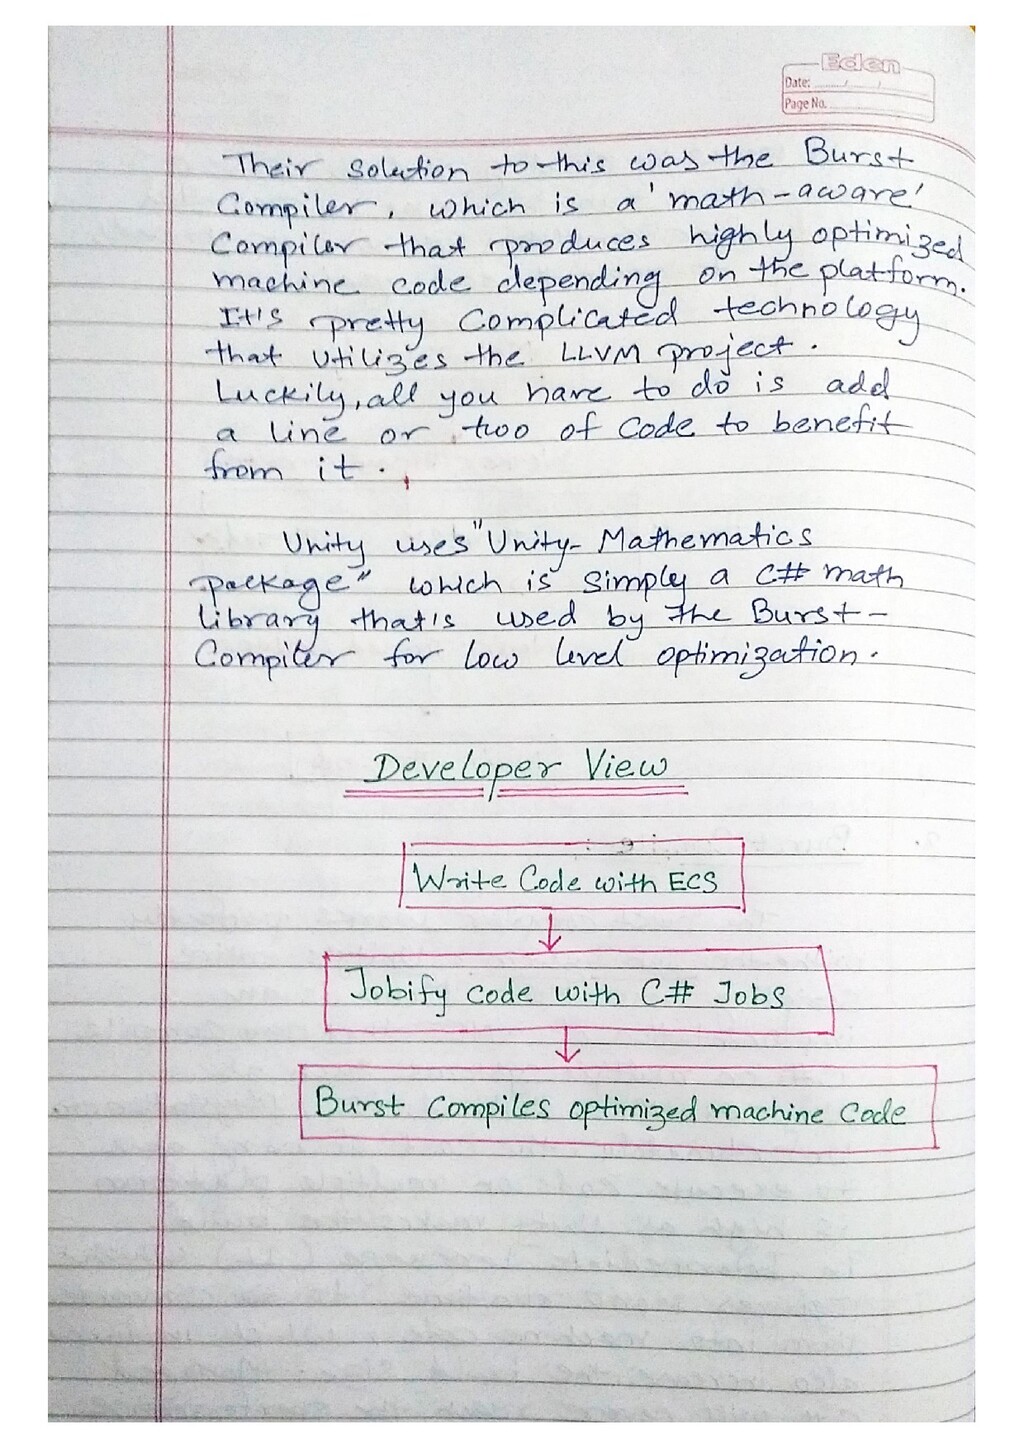 Eden
Date: ......../......../........
Page No.
Their solution to this was the Burst
Compiler, which is a 'math-aware'
Compiler that produces highly optimized
machine code depending on the platform.
It's pretty Complicated technology
that utilizes the LLVM project.
Luckily, all you have to do is add
a line or two of Code to benefit
from it.
Unity uses "Unity-Mathematics
package" which is simply a C# math
library that's used by the Burst-
Compiler for low level optimization.
Developer View
Write Code with ECS
Jobify code with C# Jobs
Burst Compiles optimized machine Code